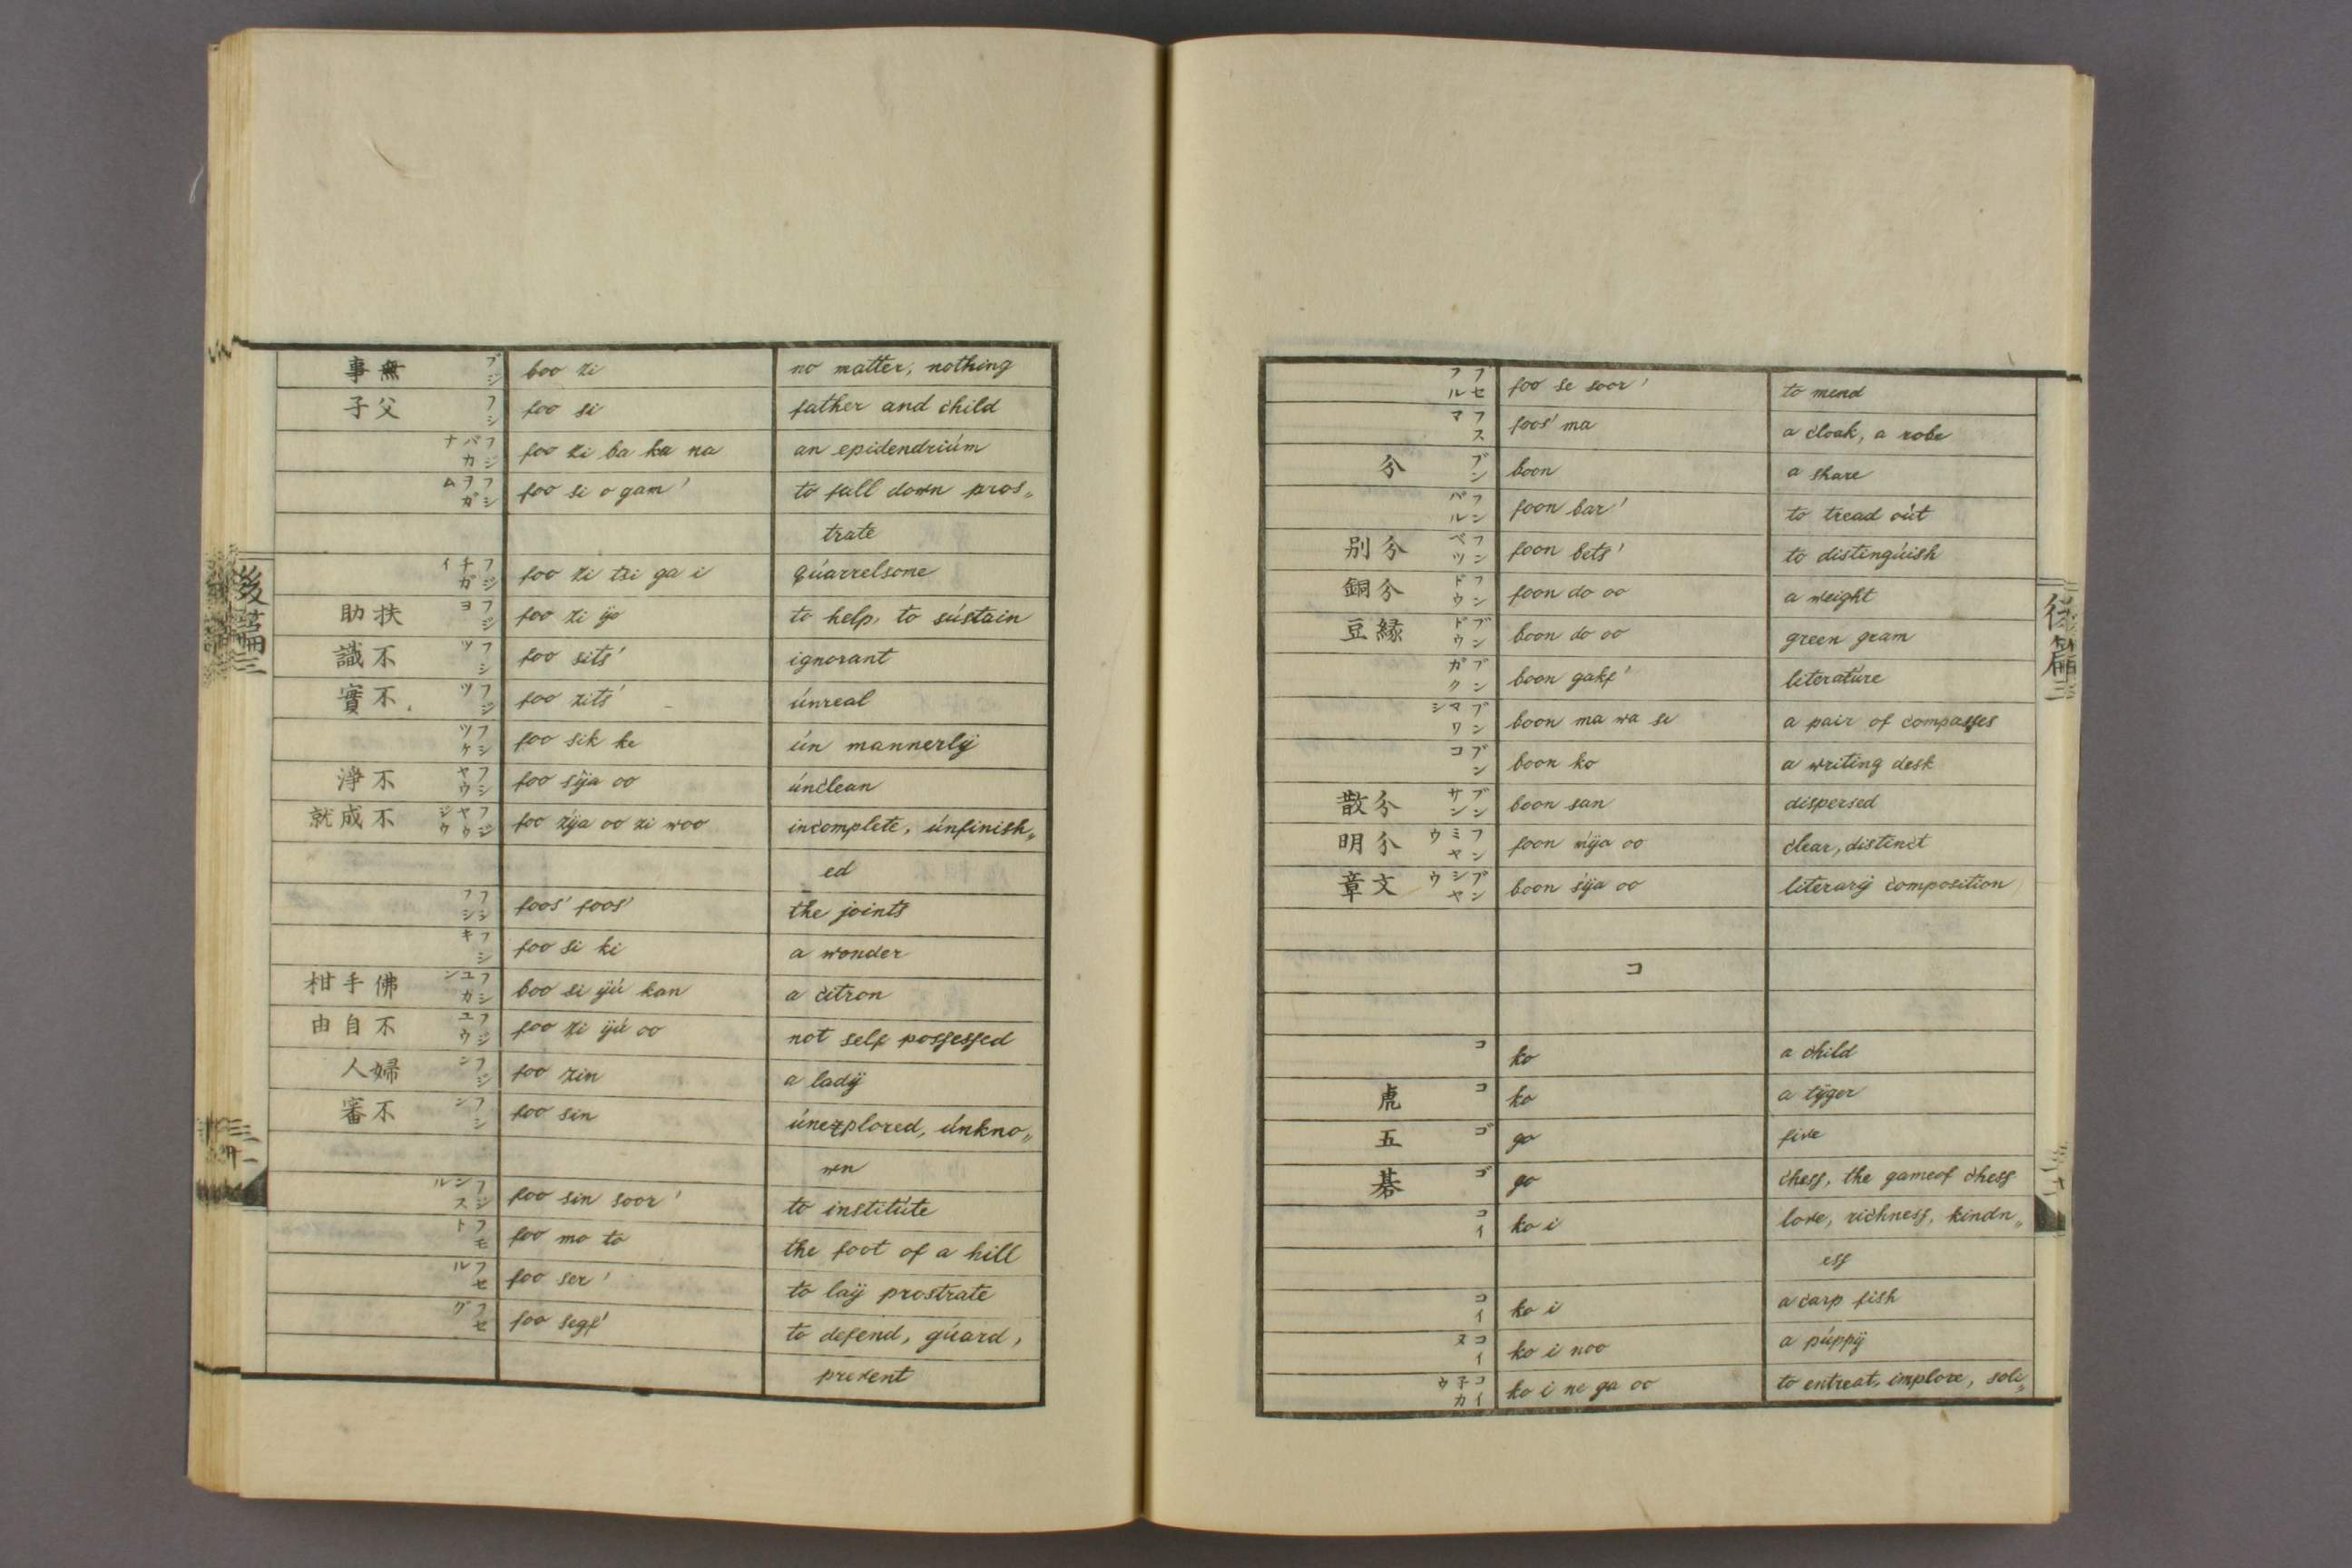 事無 ブジ boo zi no matter, nothing
子父 フシ foo si father and child
フジバカナ foo zi ba ka na an epidendriúm
フシヲガム foo si o gam' to fall down pros„
trate
フジチガイ foo zi tsi ga i qúarrelsome
助扶 フジヨ foo zi ÿo to help, to sústain
識不 フシツ foo sits' ignorant
實不 フジツ foo zits' únreal
フシツケ foo sik ke ún mannerlÿ
淨不 フシヤウ foo sÿa oo únclean
就成不 フジヤウジウ foo zÿa oo zi woo incomplete, únfinish„
ed
フシフシ foos' foos' the joints
フシキ foo si ki a wonder
柑手佛 フシユカン boo si ÿú kan a citron
由自不 フジユウ foo zi ÿú oo not self possessed
人婦 フジン foo zin a ladÿ
審不 フシン foo sin únexplored, únkno„
wn
フシンスル foo sin soor' to institúte
フモト foo mo to the foot of a hill
フセル foo ser' to laÿ prostrate
フセグ foo segf' to defend, gúard,
prevent
後篇三
フセフル foo se soor' to mend
フスマ foos' ma a cloak, a robe
分 ブン boon a share
フンバル foon bar' to tread oút
別分 フンベツ foon bets' to distingúish
銅分 フンドウ foon do oo a weight
豆緑 ブンドウ boon do oo green gram
ブンガク boon gakf' literatúre
ブンマワシ boon ma wa si a pair of compasses
ブンコ boon ko a writing desk
散分 ブンサン boon san dispersed
明分 フンミヤウ foon mÿa oo clear, distinct
章文 ブンシヤウ boon sÿa oo literarÿ composition
コ
コ ko a child
虎 コ ko a tÿger
五 ゴ go five
碁 ゴ go chess, the game of chess
コイ ko i love, richness, kindn„
ess
コイ ko i a carp fish
コイヌ ko i noo a púppÿ
コイ子カウ ko i ne ga oo to entreat, implore, soli„